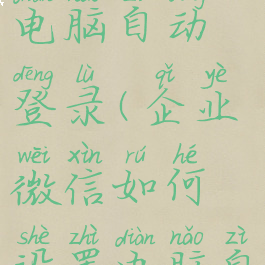 电脑自动
dēng lù qǐ yè
登录(企业
wēi xìn rú hé
微信如何
shè zhì diàn nǎo zì
设置电脑自